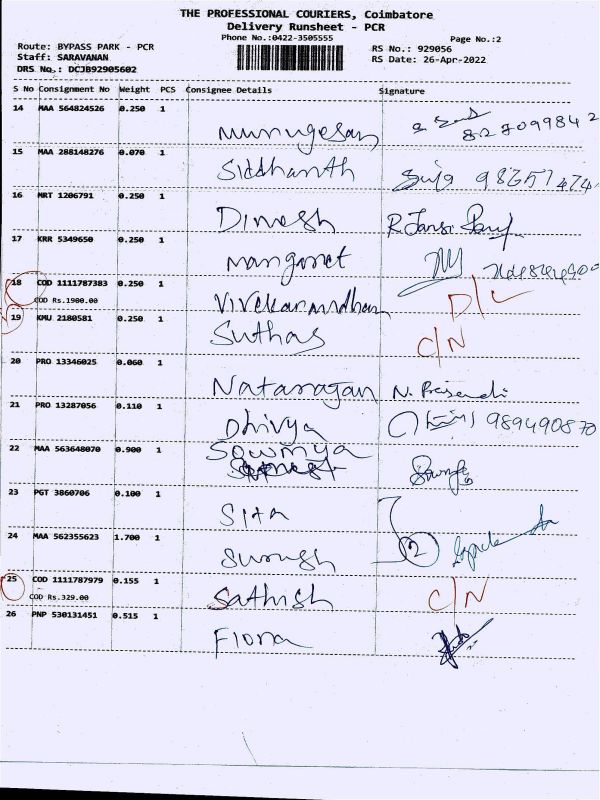 THE PROFESSIONAL COURIERS, Coimbatore
Delivery Runsheet - PCR
Phone No.:0422-3505555
Page No.:2
Route: BYPASS PARK - PCR
RS No.: 929056
Staff: SARAVANAN
RS Date: 26-Apr-2022
DRS No.: DCJB92905602
S No Consignment No Weight PCS Consignee Details Signature
14 MAA 564824526 0.250 1 Murugesan 827099842
15 MAA 288148276 0.070 1 Siddhanth
16 MRT 1206791 0.250 1 Dinesh
17 KRR 5349650 0.250 1 Margaret
18 COD 1111787383 0.250 1 Vivekanandhan D/L
COD Rs.1900.00
19 KMU 2180581 0.250 1 Suthas C/N
20 PRO 13346025 0.060 1 Natarajan N.
21 PRO 13287056 0.110 1 Dhivya 989490870
22 MAA 563648070 0.900 1 Sowmya
23 PGT 3860706 0.100 1 Sita
24 MAA 562355623 1.700 1 Suresh 2
25 COD 1111787979 0.155 1 Sathish C/N
COD Rs.329.00
26 PNP 530131451 0.515 1 Fiona